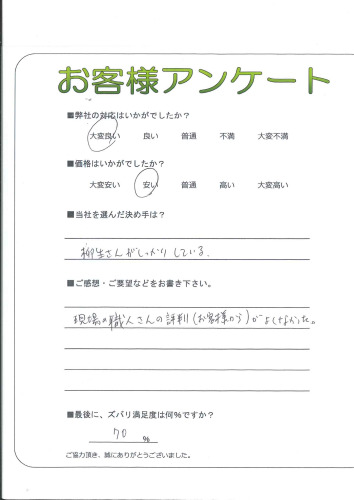 お客様アンケート
■弊社の対応はいかがでしたか？
大変良い 良い 普通 不満 大変不満
■価格はいかがでしたか？
大変安い 安い 普通 高い 大変高い
■当社を選んだ決め手は？
柳生さんがしっかりしている。
■ご感想・ご要望などをお書き下さい。
現場の職人さんの評判(お客様から)がよくなかった。
■最後に、ズバリ満足度は何%ですか？
70 %
ご協力頂き、誠にありがとうございました。